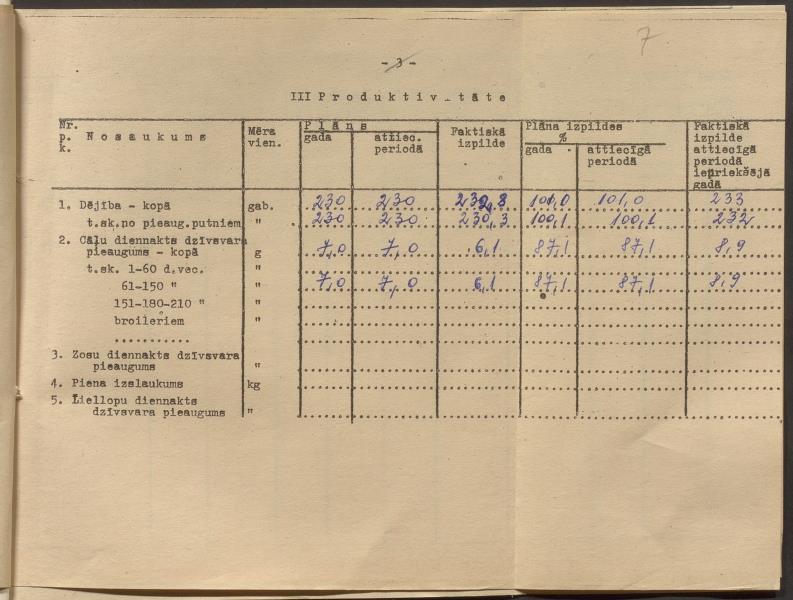 7
- 3 -
III Produktiv_tāte
Nr. p. k. Nosaukums Mēra vien. Plāns gada attiec. periodā Faktiskā izpilde Plāna izpildes % gada attiecīgā periodā Faktiskā izpilde attiecīgā periodā iepriekšējā gadā
1. Dējība - kopā gab. 230 230 232,8 101,0 101,0 233
t.sk.no pieaug.putniem " 230 230 230,3 100,1 100,1 232
2. Cāļu diennakts dzīvsvara
pieaugums - kopā g 7,0 7,0 6,1 87,1 87,1 8,9
t.sk. 1-60 d.vec. "
61-150 " " 7,0 7,0 6,1 87,1 87,1 8,9
151-180-210 " "
broileriem "
...........
3. Zosu diennakts dzīvsvara
pieaugums "
4. Piena izslaukums kg
5. Liellopu diennakts
dzīvsvara pieaugums "